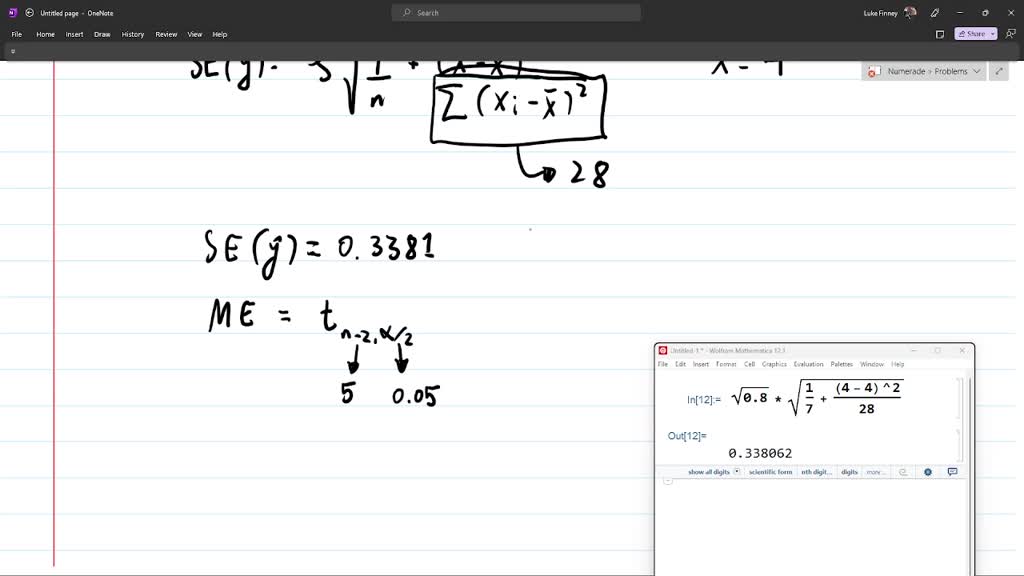 Untitled page - OneNote
Search
Luke Finney
File Home Insert Draw History Review View Help
Share
SE(ŷ)= S√(1/n + (x-x̄)
x = 4
Numerade > Problems
Σ(xi-x̄)²
28
SE(ŷ) = 0.3381
ME = t n-2, α/2
5 0.05
Untitled-1 * - Wolfram Mathematica 12.1
File Edit Insert Format Cell Graphics Evaluation Palettes Window Help
In[12]:= √0.8 * √(1/7 + (4 - 4)^2/28)
Out[12]=
0.338062
show all digits scientific form nth digit... digits more...